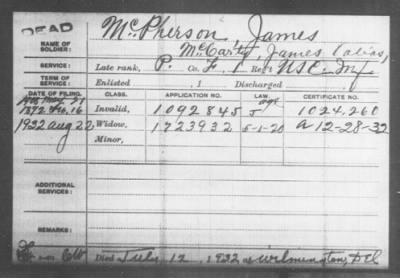 DEAD
NAME OF SOLDIER: McPherson, James
McCarty, James (alias)
SERVICE: Late rank, P. Co. F, 1 Reg't U.S.C. Inf
TERM OF SERVICE: Enlisted , 1 Discharged , 1
DATE OF FILING. CLASS. APPLICATION NO. LAW. CERTIFICATE NO.
1892 Feb. 16 Invalid, 1092845 1024,260
1922 Aug 22 Widow, 1723932 5-1-20 A 12-28-32
Minor,
ADDITIONAL SERVICES:
REMARKS:
CW Died July 12, 1922 at Wilmington, Del